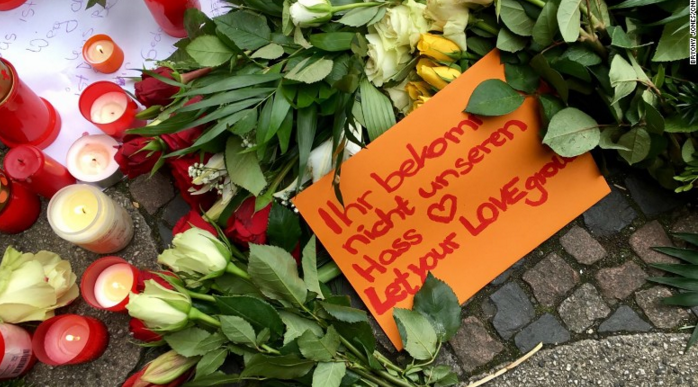 Ihr bekommt
nicht unseren
Hass ♡
Let your LOVE grow
BRYONY JONES/CNN